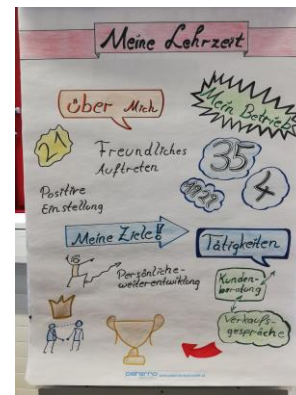 Meine Lehrzeit
Über Mich
Mein Betrieb
21
Freundliches
Auftreten
35
4
Positive
Einstellung
Meine Ziele!
Tätigkeiten
Persönliche-
weiterentwiklung
Kunden-
beratung
Verkaufs-
gespräche